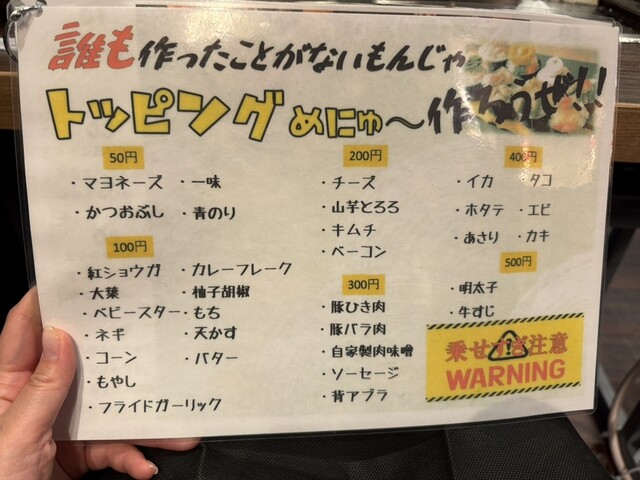 誰も作ったことがないもんじゃ
トッピングめにゅ〜作ろうぜ!!
50円
・マヨネーズ ・一味
・かつおぶし ・青のり
100円
・紅ショウガ ・カレーフレーク
・大葉 ・柚子胡椒
・ベビースター ・もち
・ネギ ・天かす
・コーン ・バター
・もやし
・フライドガーリック
200円
・チーズ
・山芋とろろ
・キムチ
・ベーコン
300円
・豚ひき肉
・豚バラ肉
・自家製肉味噌
・ソーセージ
・背アブラ
400円
・イカ ・タコ
・ホタテ ・エビ
・あさり ・カキ
500円
・明太子
・牛すじ
乗せすぎ注意
WARNING